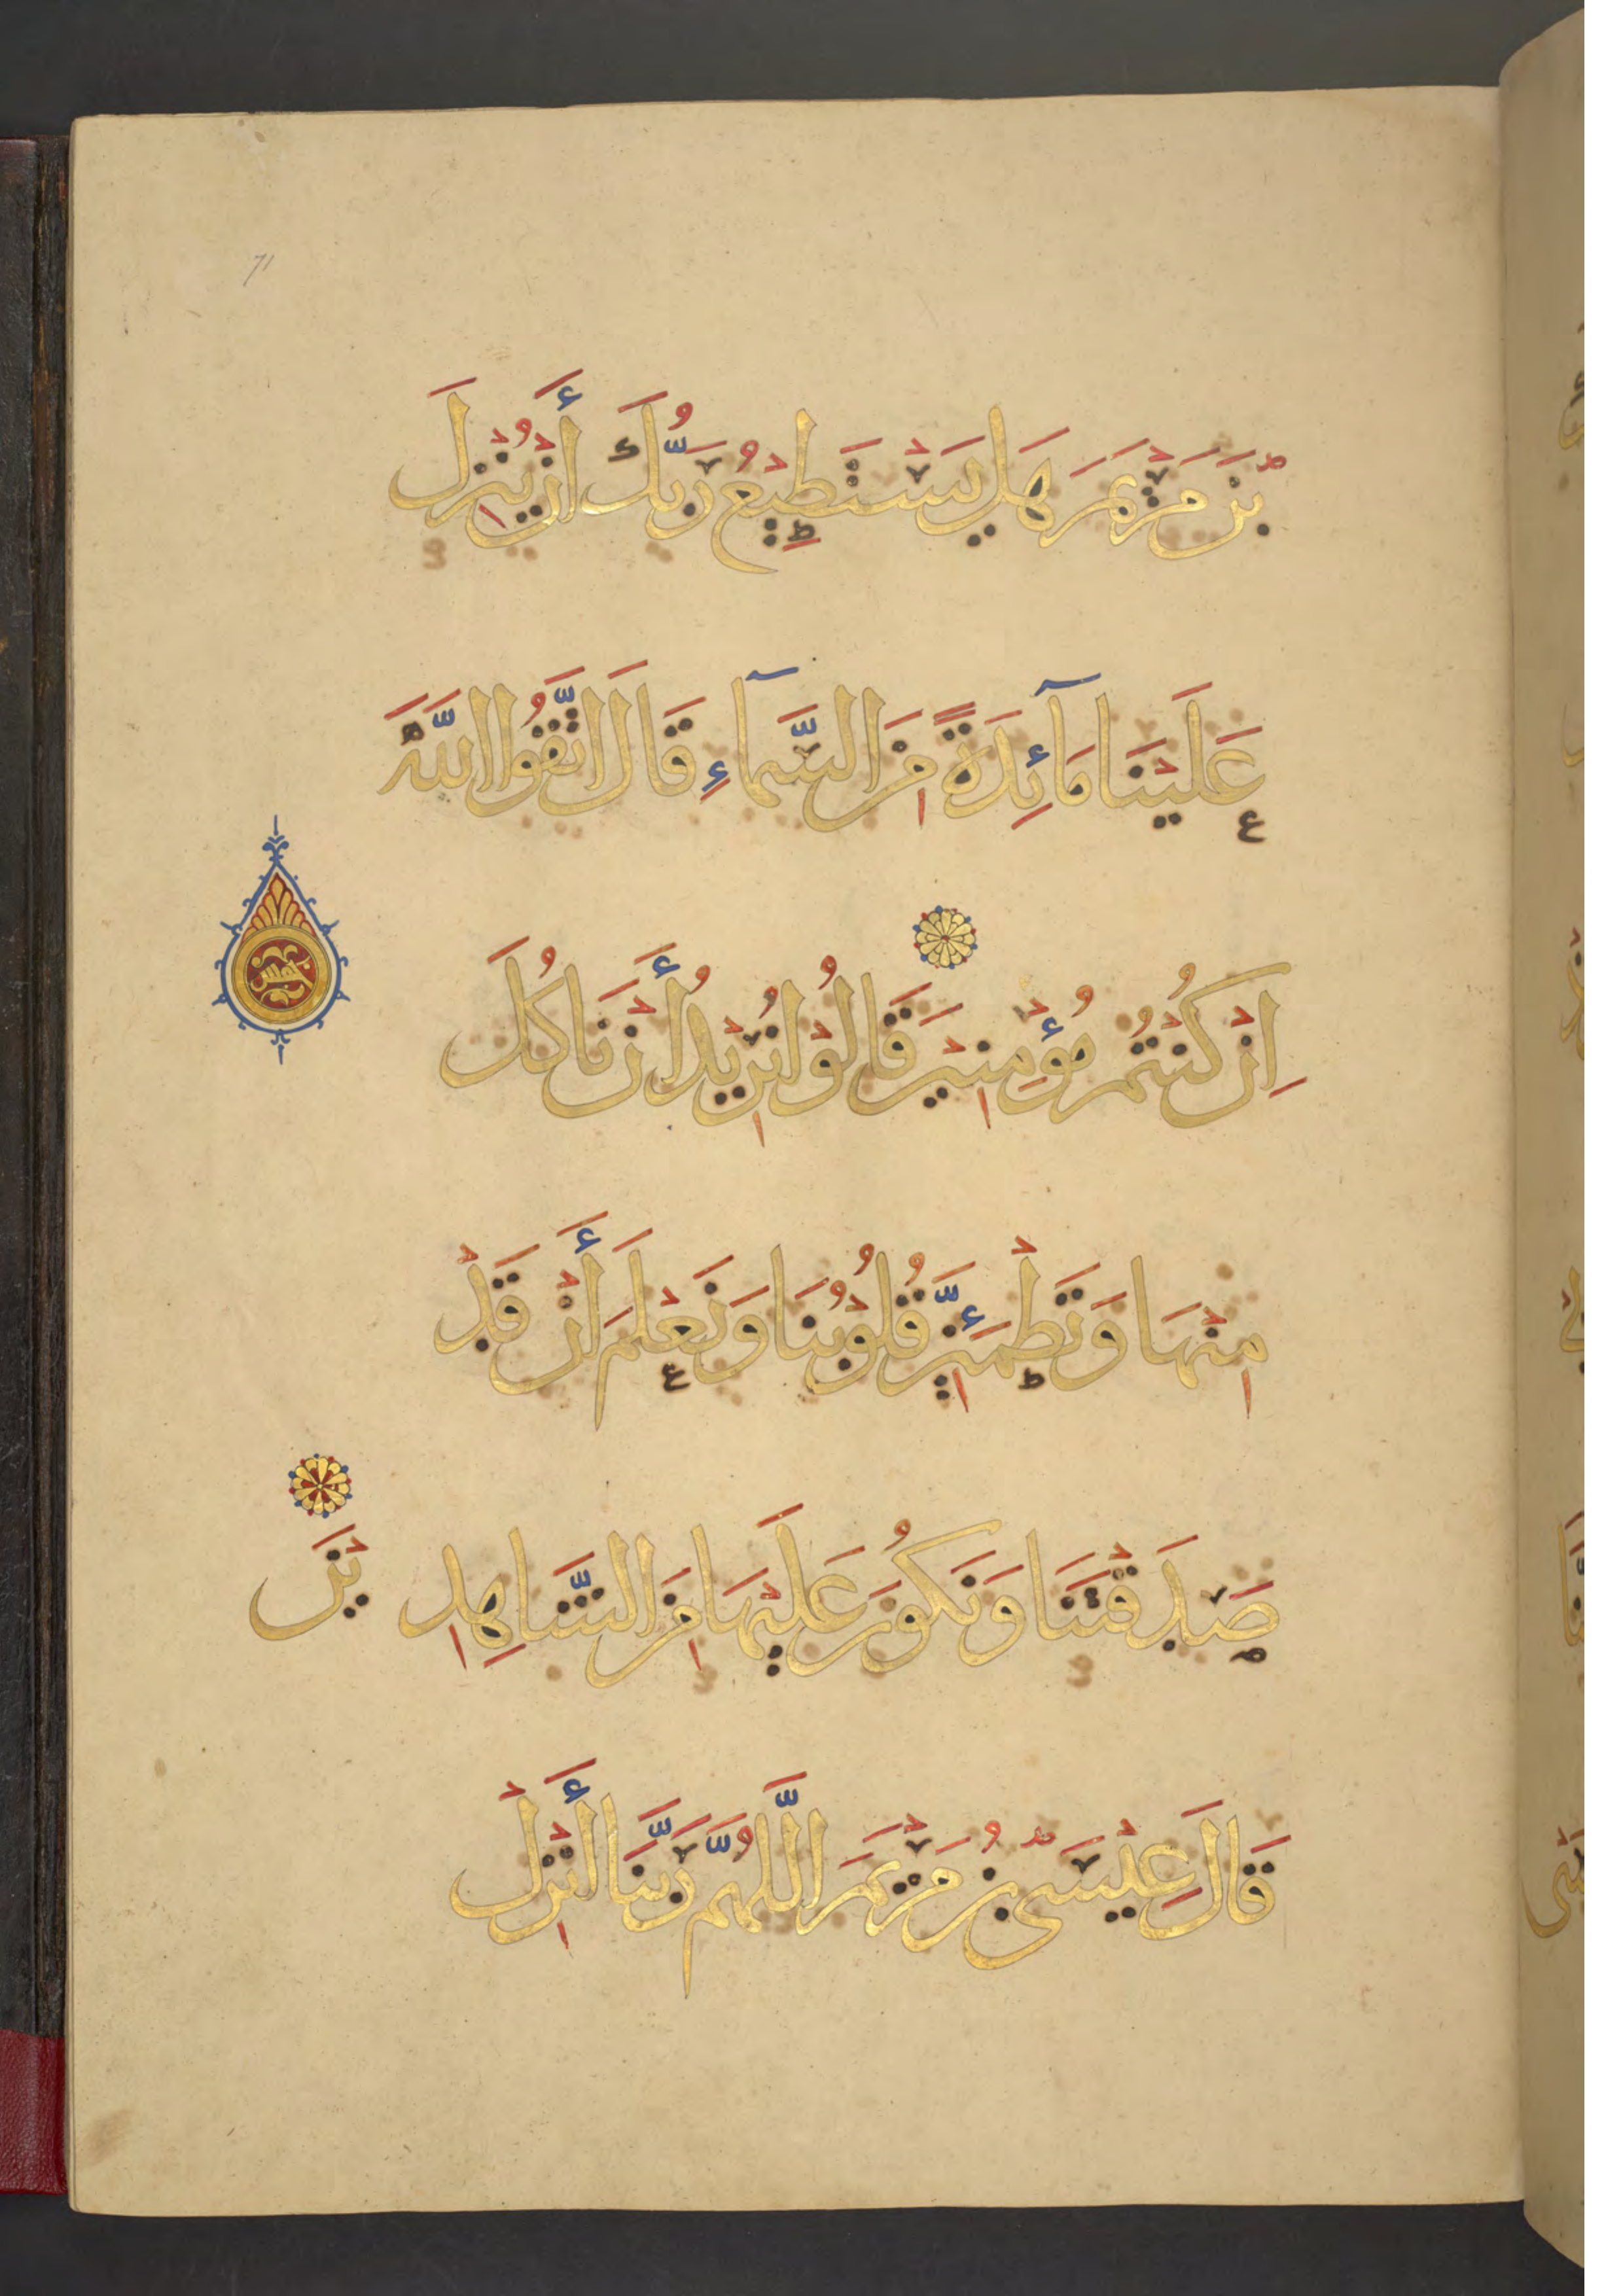 71
بْنَ مَرْيَمَ هَلْ يَسْتَطِيعُ رَبُّكَ أَنْ يُنَزِّلَ
عَلَيْنَا مَآئِدَةً مِنَ السَّمَآءِ قَالَ اتَّقُوا اللَّهَ
اِنْ كُنْتُمْ مُؤْمِنِيْنَ قَالُوْا نُرِيْدُ أَنْ نَاكُلَ
خمس
مِنْهَا وَتَطْمَئِنَّ قُلُوْبُنَا وَنَعْلَمَ أَنْ قَدْ
صَدَقْتَنَا وَنَكُوْنَ عَلَيْهَا مِنَ الشَّاهِدِيْنَ
قَالَ عِيْسَى بْنُ مَرْيَمَ اللَّهُمَّ رَبَّنَا أَنْزِلْ